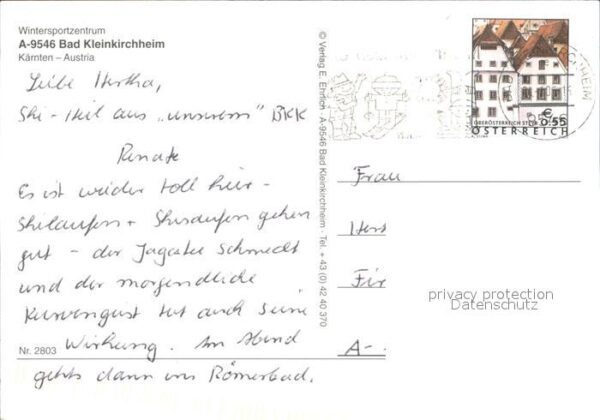 Wintersportzentrum
A-9546 Bad Kleinkirchheim
Kärnten – Austria
Liebe Hertha,
Ski-Heil aus „unserem" BKK
Renate
Es ist wieder toll hier -
Skilaufen + Skisaufen gehen
gut - der Jagatee schmeckt
und der morgendliche
tut auch seine
Wirkung. Am Abend
gehts dann ins Römerbad.
Nr. 2803
© Verlag E. Ehrlich · A-9546 Bad Kleinkirchheim · Tel. + 43 (0) 42 40 370
€ 0.55
OBERÖSTERREICH STEYR
ÖSTERREICH
Frau
Hert
Fir
A-
privacy protection
Datenschutz